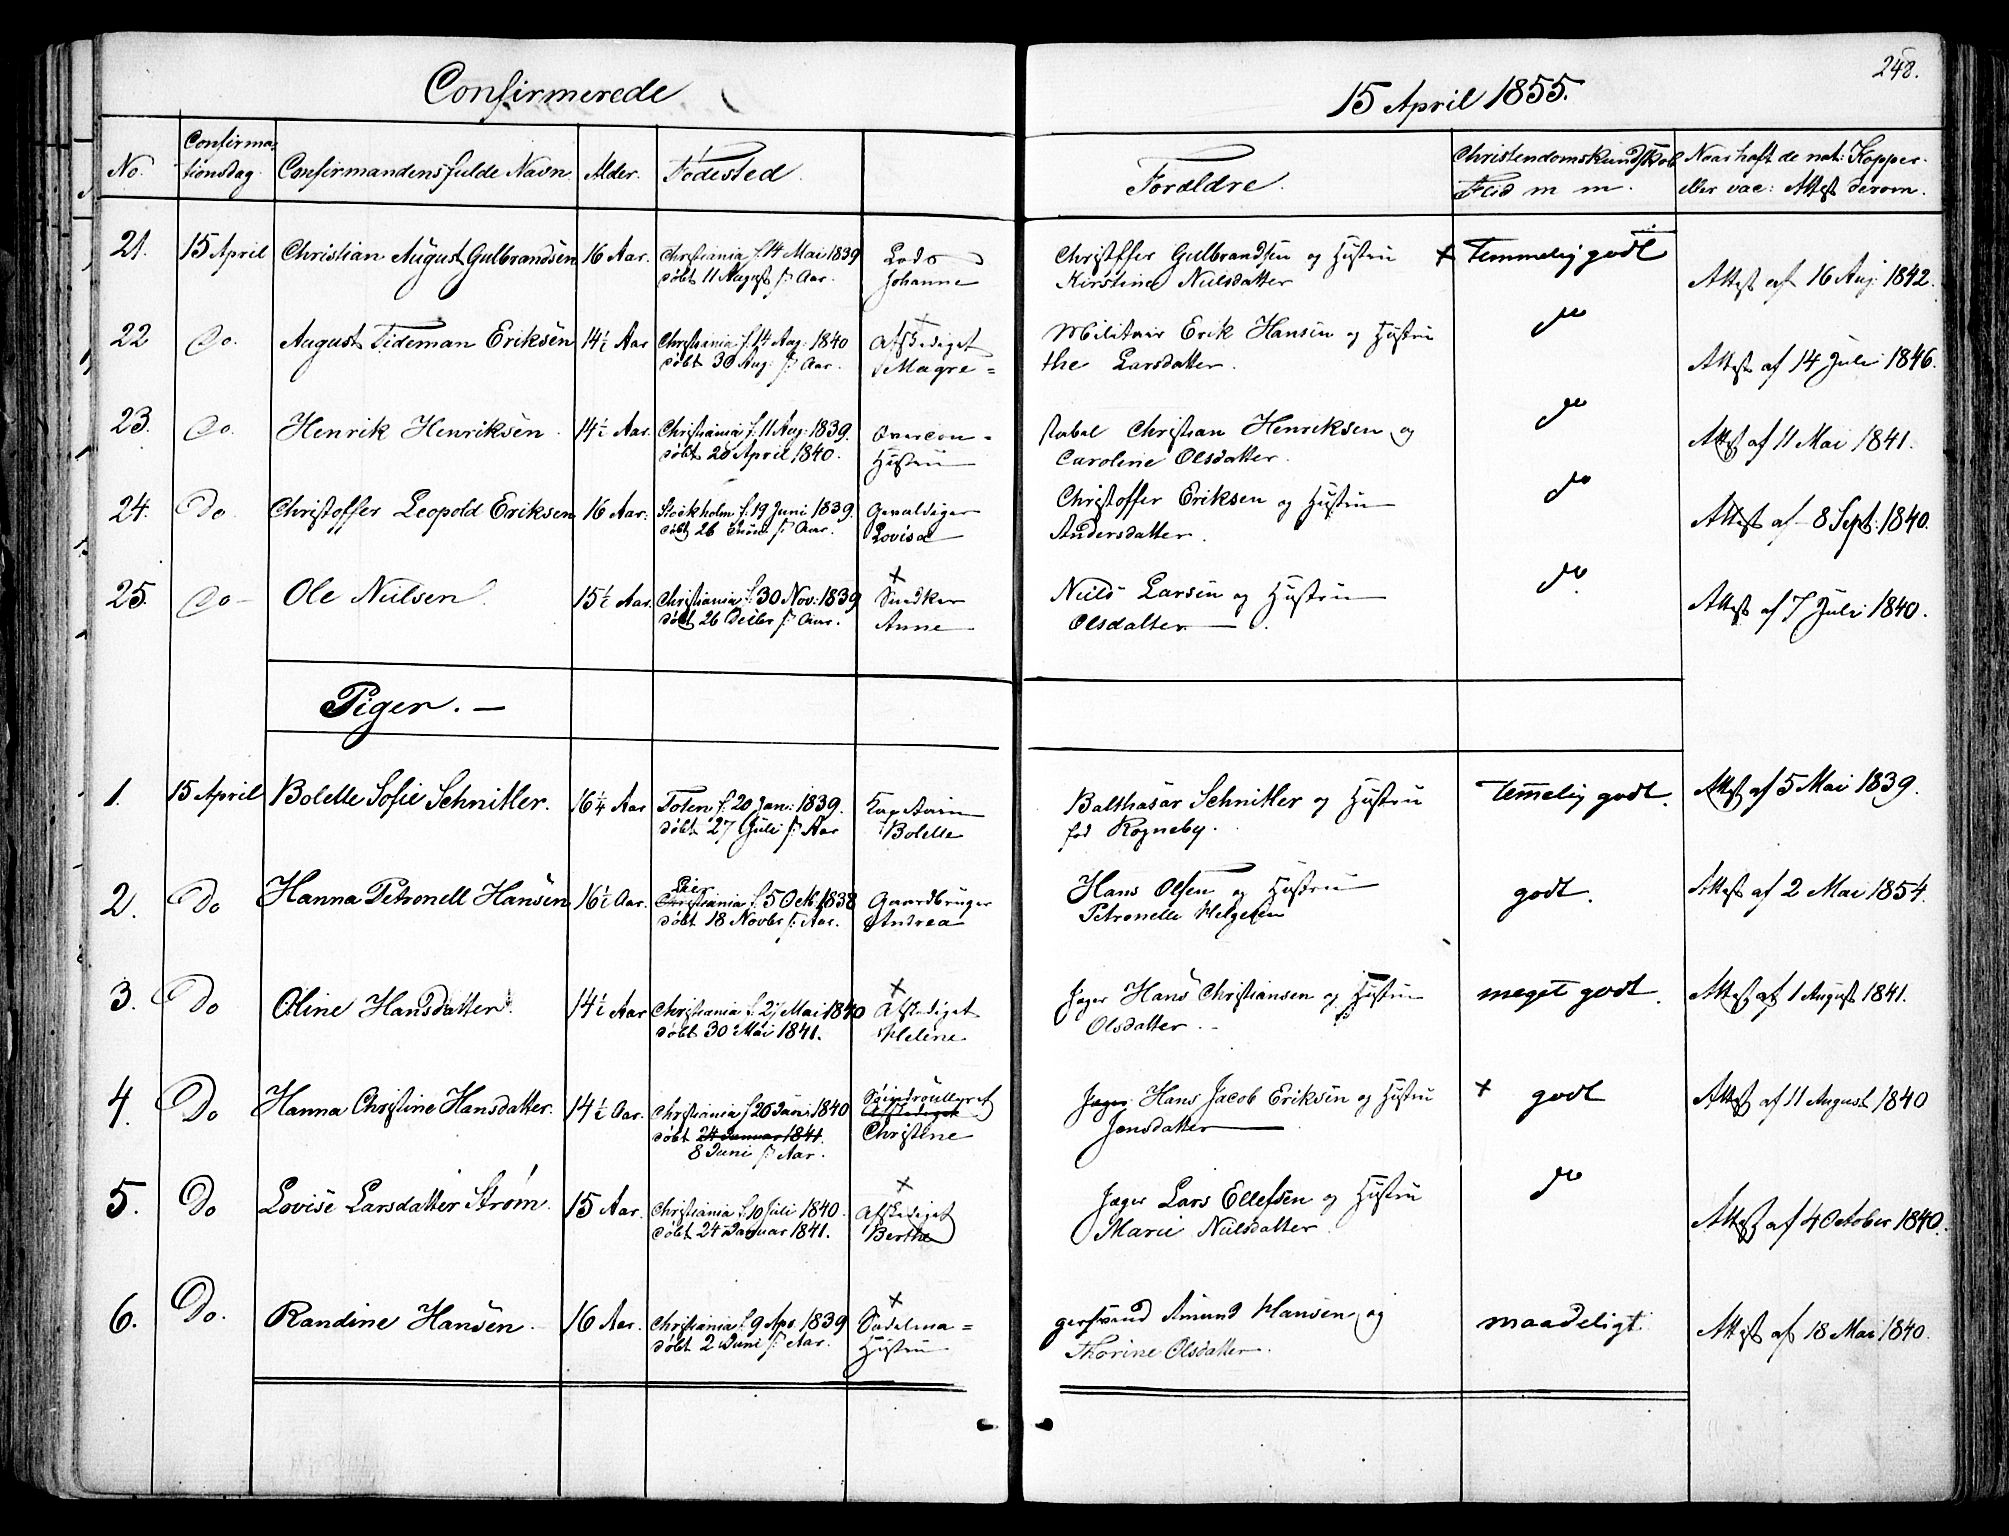 Confirmerede
15 April 1855.
248.
No. Confirma= tionsdag. Confirmandens fulde Navn Alder. Födested. Forældre. Christendomskundskab Flid m m. Naar haft de nat: Kopper eller vac: Attest derom.
21. 15 April Christian August Gulbrandsen 16 Aar. Christiania f. 14 Mai 1839 Lods Christoffer Gulbrandsen og Hustru + Temmelig godt Attest af 16 Aug: 1842.
døbt 11 August s: Aar. Johanne Kirstine Nielsdatter
22 Do. August Tideman Eriksen 14½ Aar Christiania f. 14 Aug: 1840 Afskediget Militair Erik Hansen og Hustru do Attest af 14 Juli 1846.
døbt 30 Aug: s: Aar. Magre= the Larsdatter.
23. Do. Henrik Henriksen. 14½ Aar. Christiania f. 11 Aug: 1839. Overcon= stabel Christian Henriksen og do Attest af 11 Mai 1841.
døbt 20 April 1840. Hustru Caroline Olsdatter.
24. Do. Christoffer Leopold Eriksen 16 Aar: Stockholm f. 19 Juni 1839. Gevaldiger Christoffer Eriksen og Hustru do Attest af 8 Sept: 1840.
døbt 26 Juni s: Aar. Lovise Andersdatter.
25. Do Ole Nielsen. 15½ Aar. Christiania f. 30 Nov: 1839 + Snedker Niels Larsen og Hustru do Attest af 7 Juli 1840.
døbt 26 Decbr s: Aar. Anne Olsdatter.
Piger. —
1. 15 April Bolette Sofie Schnitler. 16¼ Aar Toten f. 20 Jan: 1839. Kaptain Balthasar Schnitler og Hustru Temmelig godt. Attest af 5 Mai 1839.
døbt 27 Juli s: Aar Bolette fød Rogneby.
2. Do Hanna Petronell Hansen 16½ Aar. Lier Christiania f. 5 Oct. 1838 Gaardbruger Hans Olsen og Hustru godt. Attest af 2 Mai 1854.
døbt 18 Novbr s: Aar. Andrea Petronelle Helgesen
3. Do Oline Hansdatter. 14½ Aar Christiania f. 27 Mai 1840 + Afskediget Jæger Hans Christiansen og Hustru meget godt. Attest af 1 August 1841.
døbt 30 Mai 1841. Helene Olsdatter.
4. Do Hanna Christine Hansdatter. 14½ Aar. Christiania f. 20 Juni 1840 Afskediget Jæger Hans Jacob Eriksen og Hustru + godt Attest af 11 August 1840
døbt 24 Januar 1841. Christine Jensdatter
8 Juni s: Aar.
5. Do Lovise Larsdatter Strøm. 15 Aar. Christiania f. 10 Juli 1840. + Afskediget Jæger Lars Ellefsen og Hustru do Attest af 4 October 1840.
døbt 24 Januar 1841. Berthe Marie Nielsdatter
6. Do. Randine Hansen. 16 Aar. Christiania f. 9 Apr. 1839 + Sadelma= gersvend Amund Hansen og maadeligt Attest af 18 Mai 1840.
døbt 2 Juni s: Aar. Hustru Thorine Olsdatter.